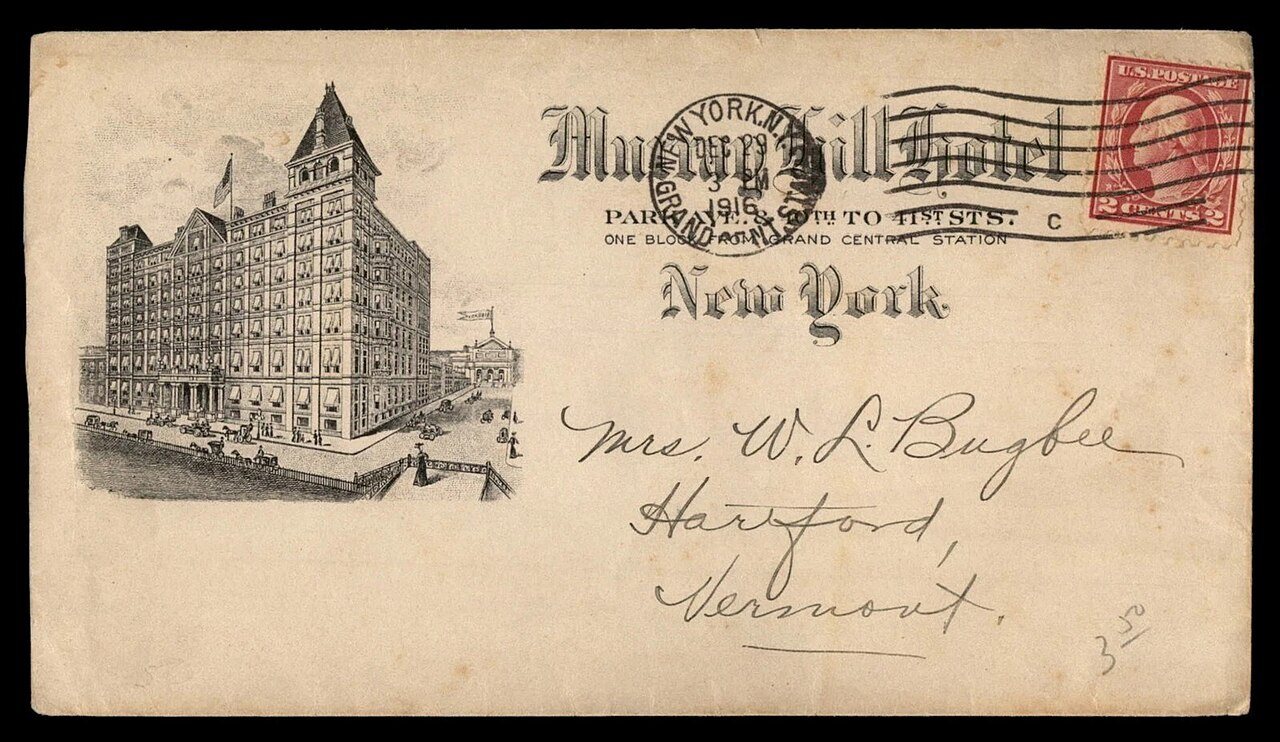 Murray Hill Hotel
PARK AVE. & 40TH TO 41ST STS.
ONE BLOCK FROM GRAND CENTRAL STATION
New York
NEW YORK, N.Y.
DEC 29
3 PM
1916
GRAND CENT. STA.
C
U.S. POSTAGE
2 CENTS 2
Mrs. W. L. Bugbee
Hartford,
Vermont.
3 50